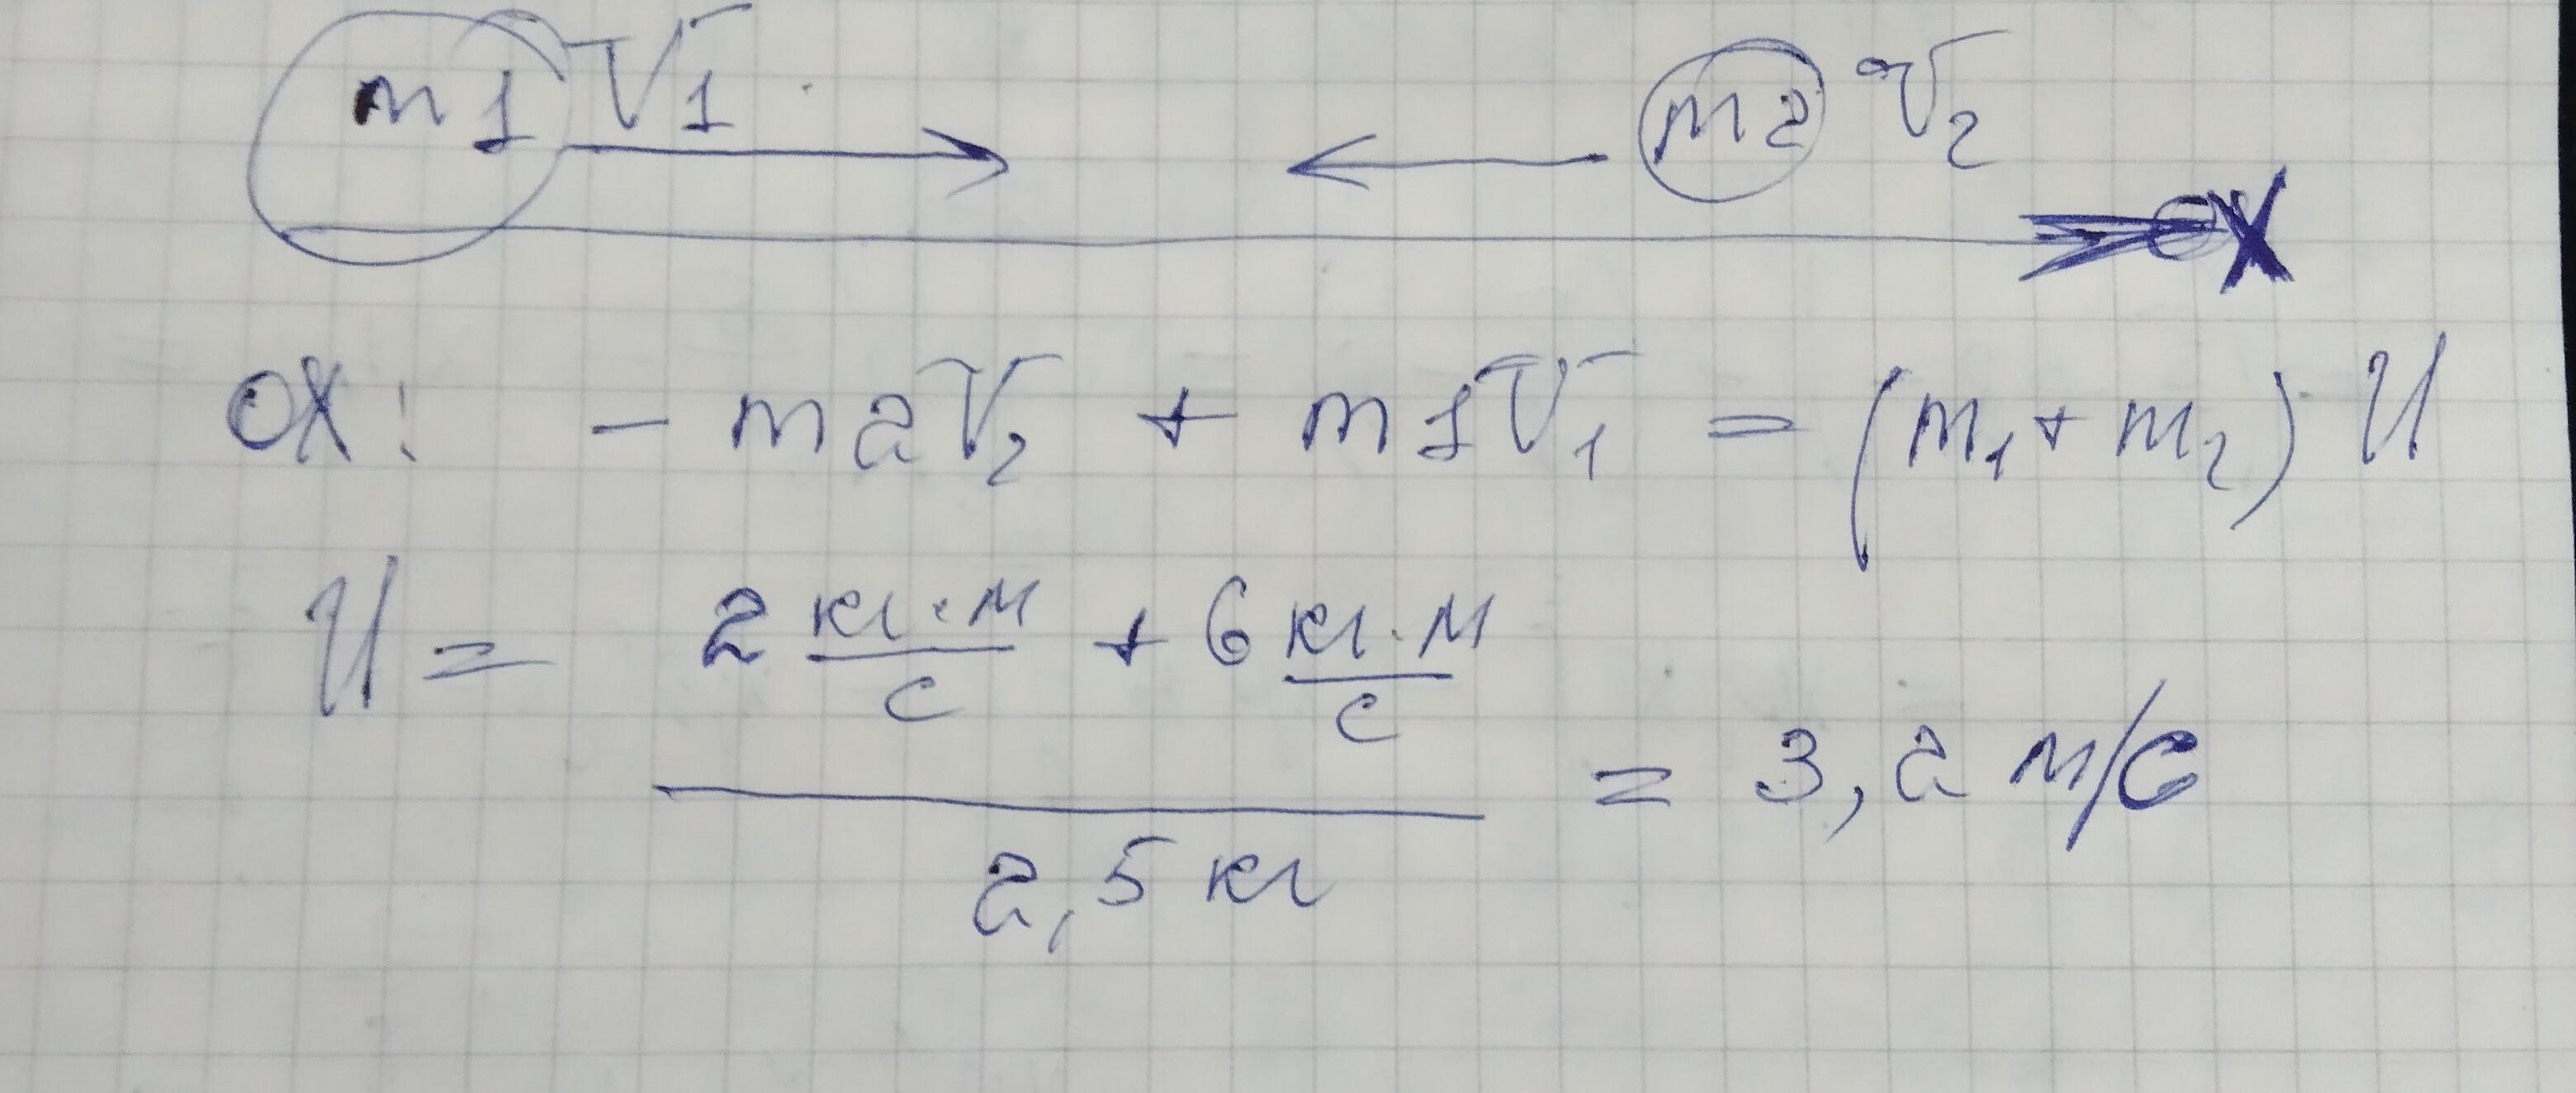 m1 V1 m2 V2
OX
OX: - m2V2 + m1V1 = (m1 + m2) · U
U = (2 кг·м/с + 6 кг·м/с) / 2,5 кг = 3,2 м/с